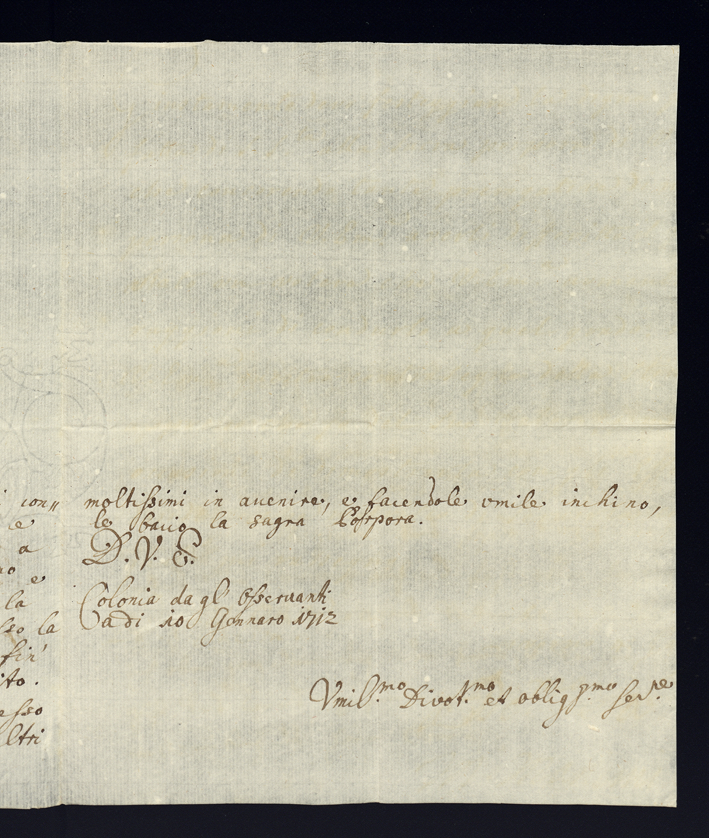 i con//
le
a
no e
la
sso la
fin'
ito.
esso
ltri
moltissimi in auenire, e facendole vmile inchino,
le bacio la sagra Porpora.
D. V. E.
Colonia dagl' Osseruanti
adi 10 Gennaro 1712
Vmil.mo Divot.mo et obligp.mo ser.re